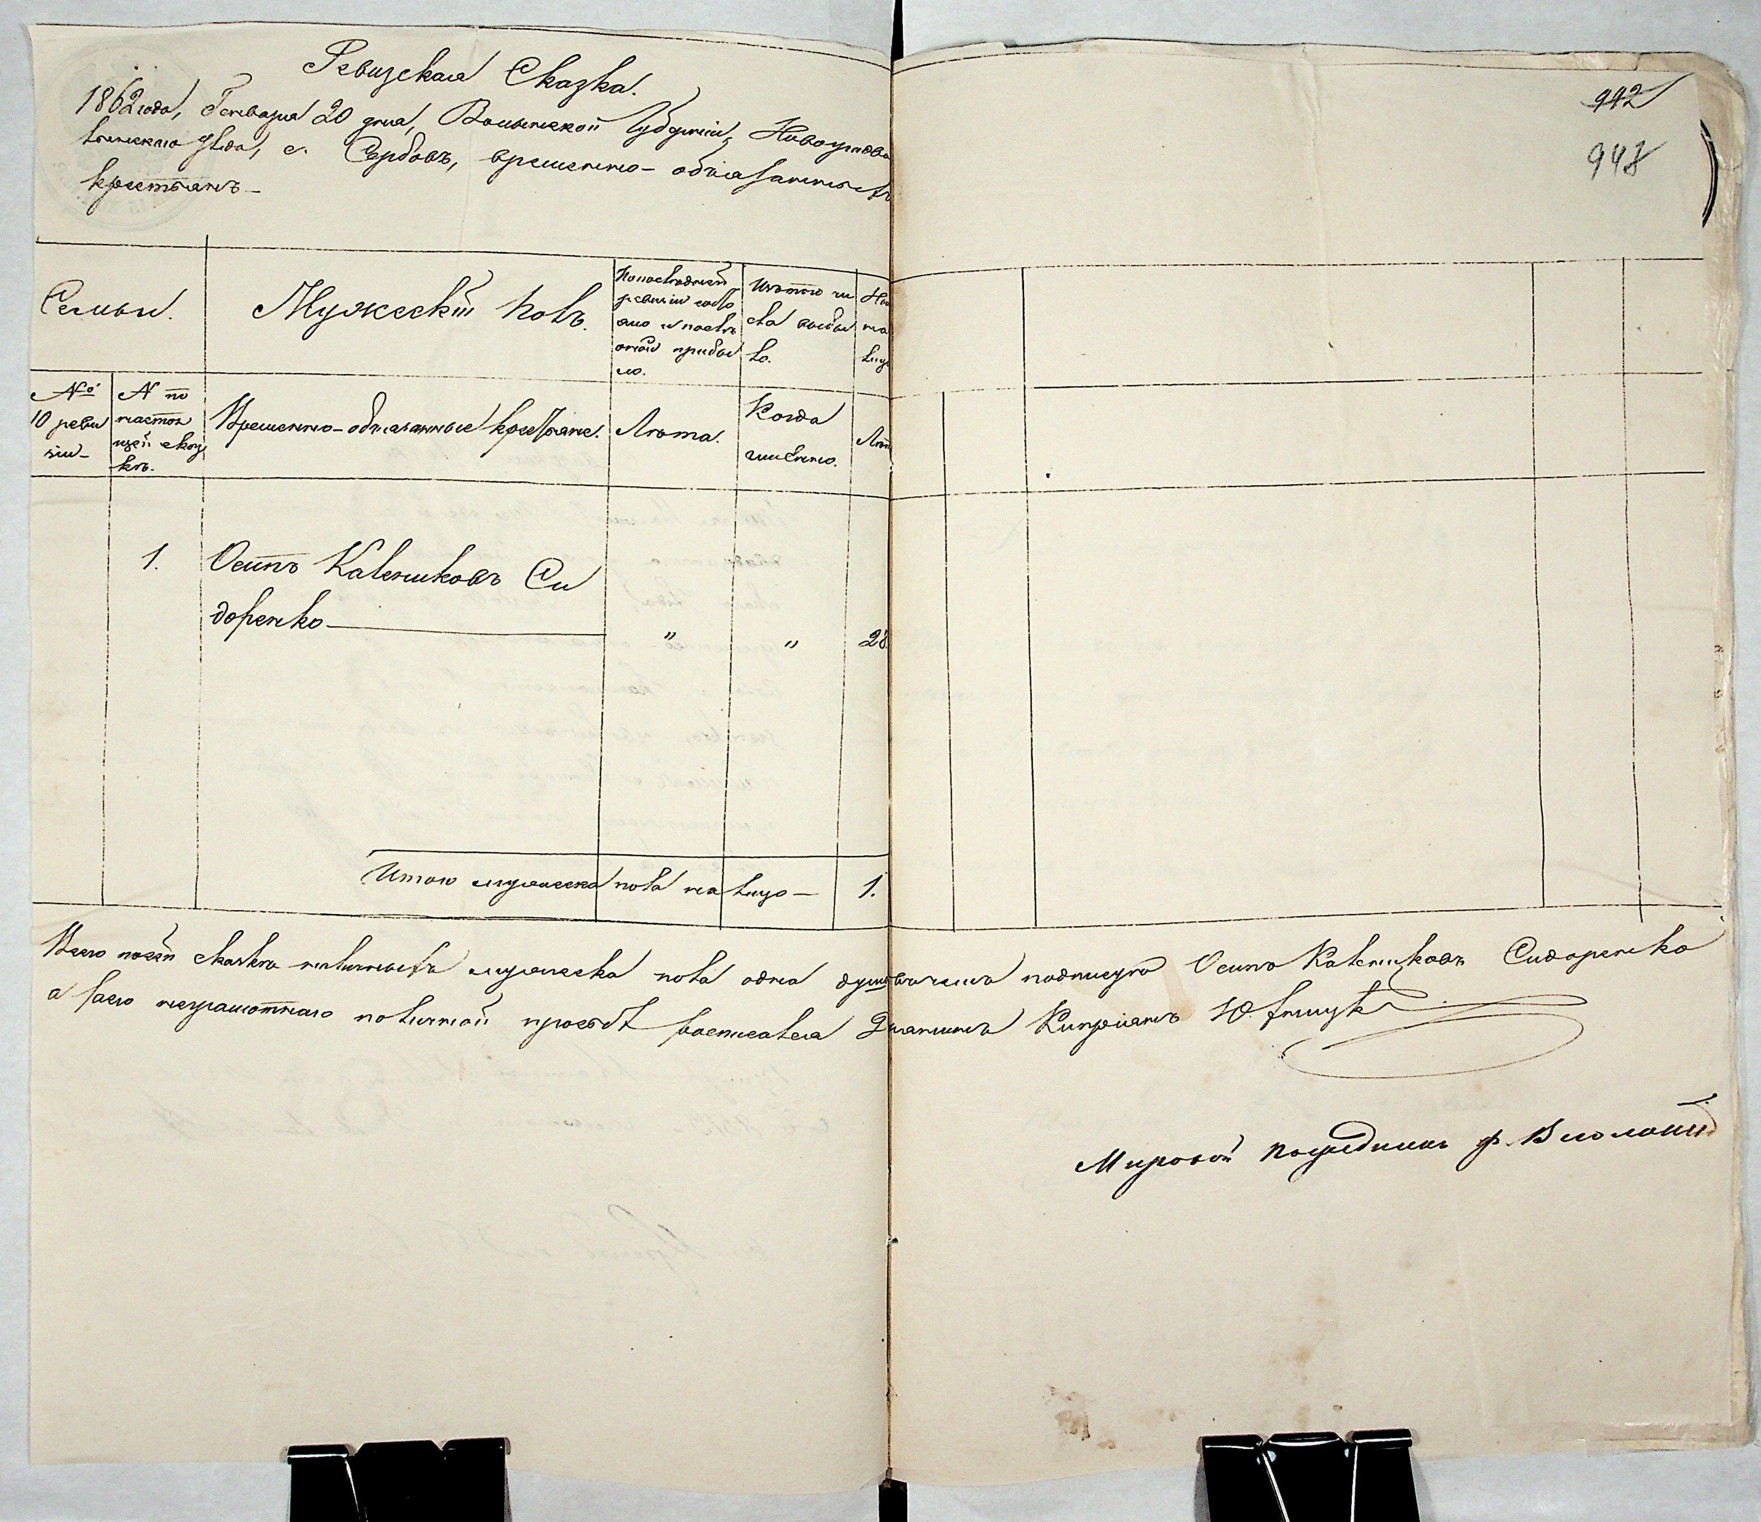 Ревизская Сказка.
942
943
1862 года, Генваря 20 дня, Волынской Губерніи, Новоградво
лынскаго уѣзда, с. Сербовъ, временно-обязанныхъ
крестьянъ
Семьи.
Мужескій полъ.
По последней ревизіи состо яло и послѣ оной прибы ло.
Изъ того чи сла выбы ло.
На ли лицо
№ 10 реви зіи
№ по настоя щей сказ кѣ.
Временно-обязанные крестьяне.
Лѣта.
Когда именно.
Лѣта
1. Осипъ Калениковъ Си
доренко " " 28.
Итого мужеска пола на лицо 1.
Всего по сей сказкѣ наличныхъ мужеска пола одна душа въ чемъ подписуюсь Осипъ Калениковъ Сидоренко
а за его неграмотнаго по личной просьбѣ росписался Кипріянъ
Мировой посредникъ